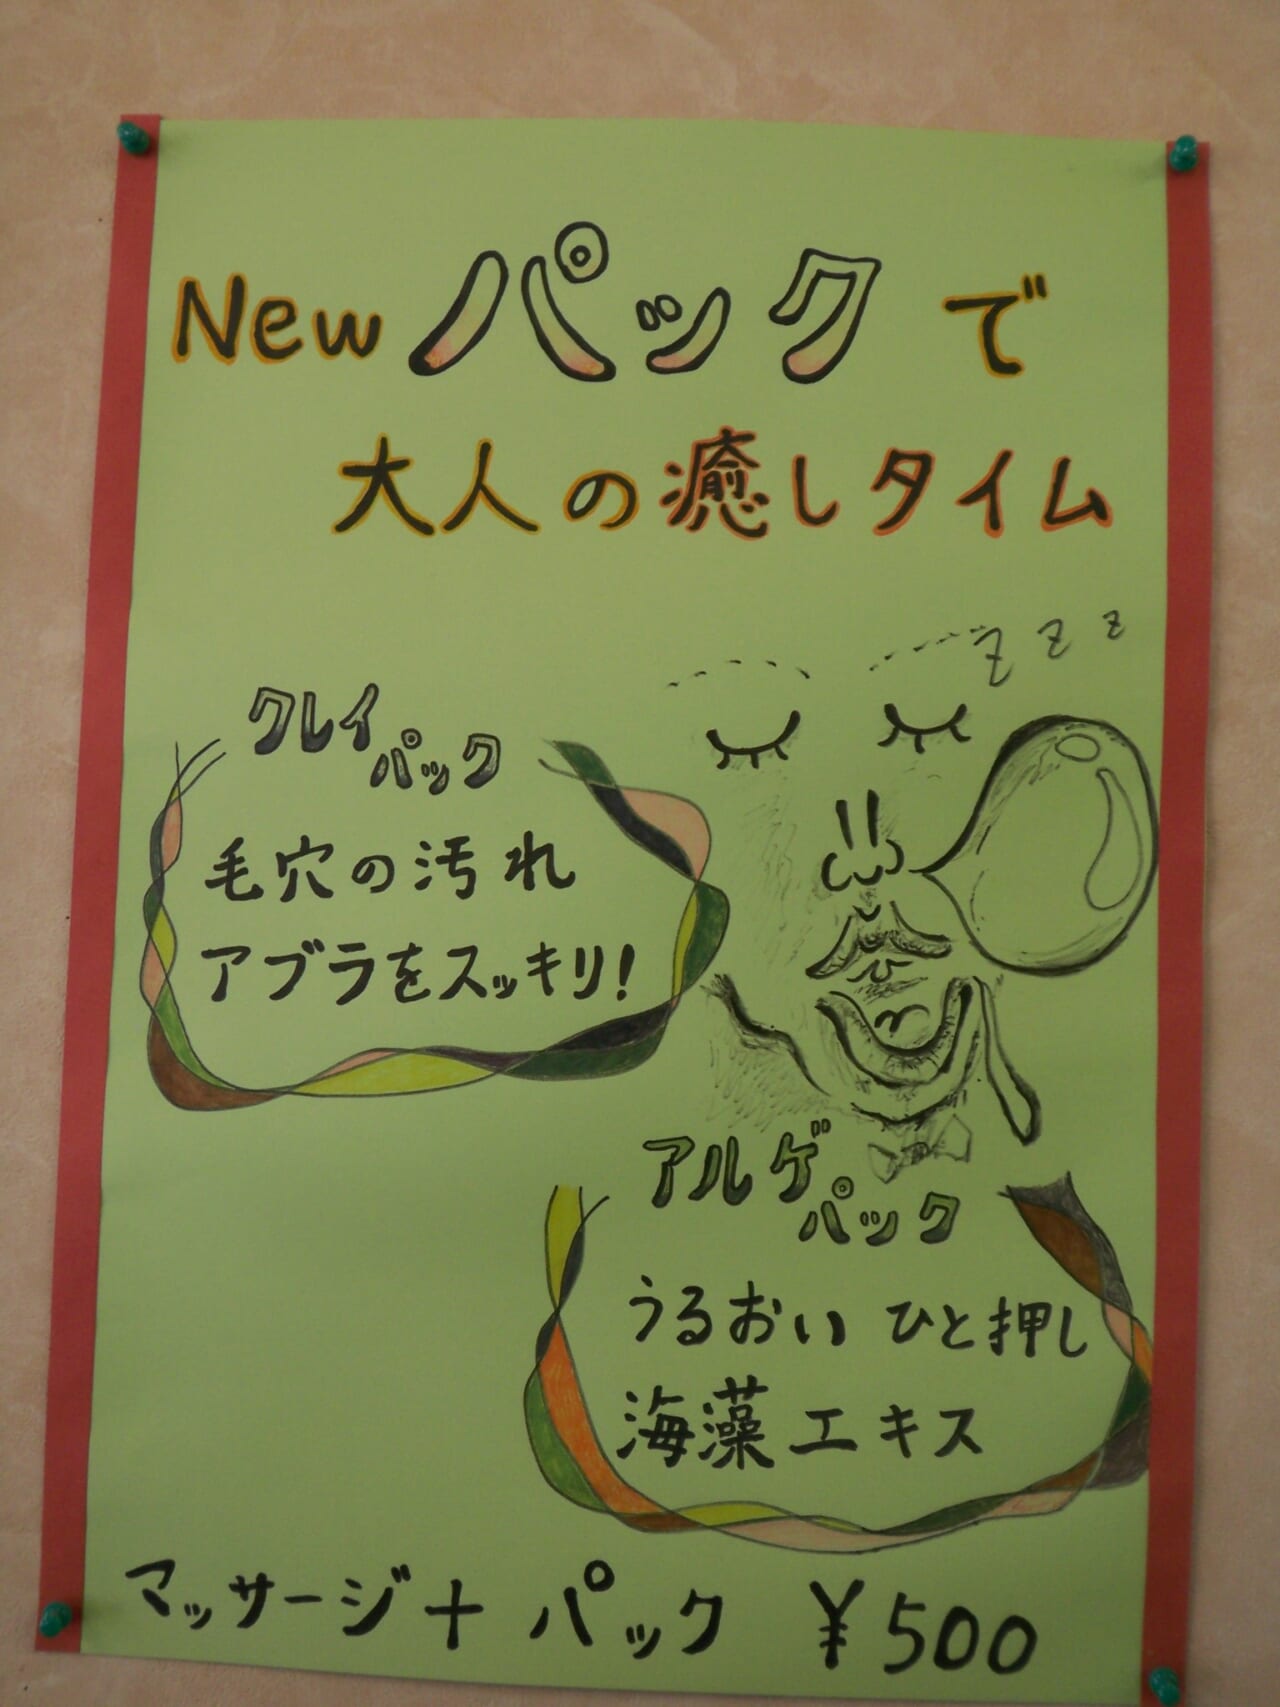 New パックで
大人の癒しタイム
zzz
クレイ
パック
毛穴の汚れ
アブラをスッキリ!
アルゲ
パック
うるおい ひと押し
海藻エキス
マッサージ+パック ¥500